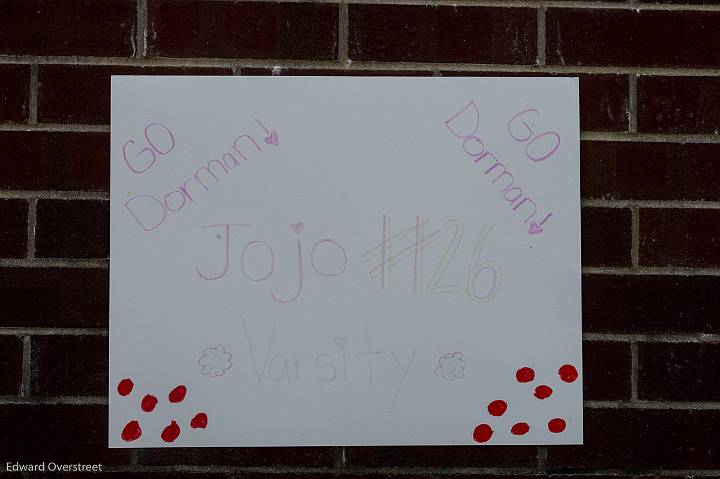 GO
Dorman!
GO
Dorman!
Jojo #26
Varsity
Edward Overstreet